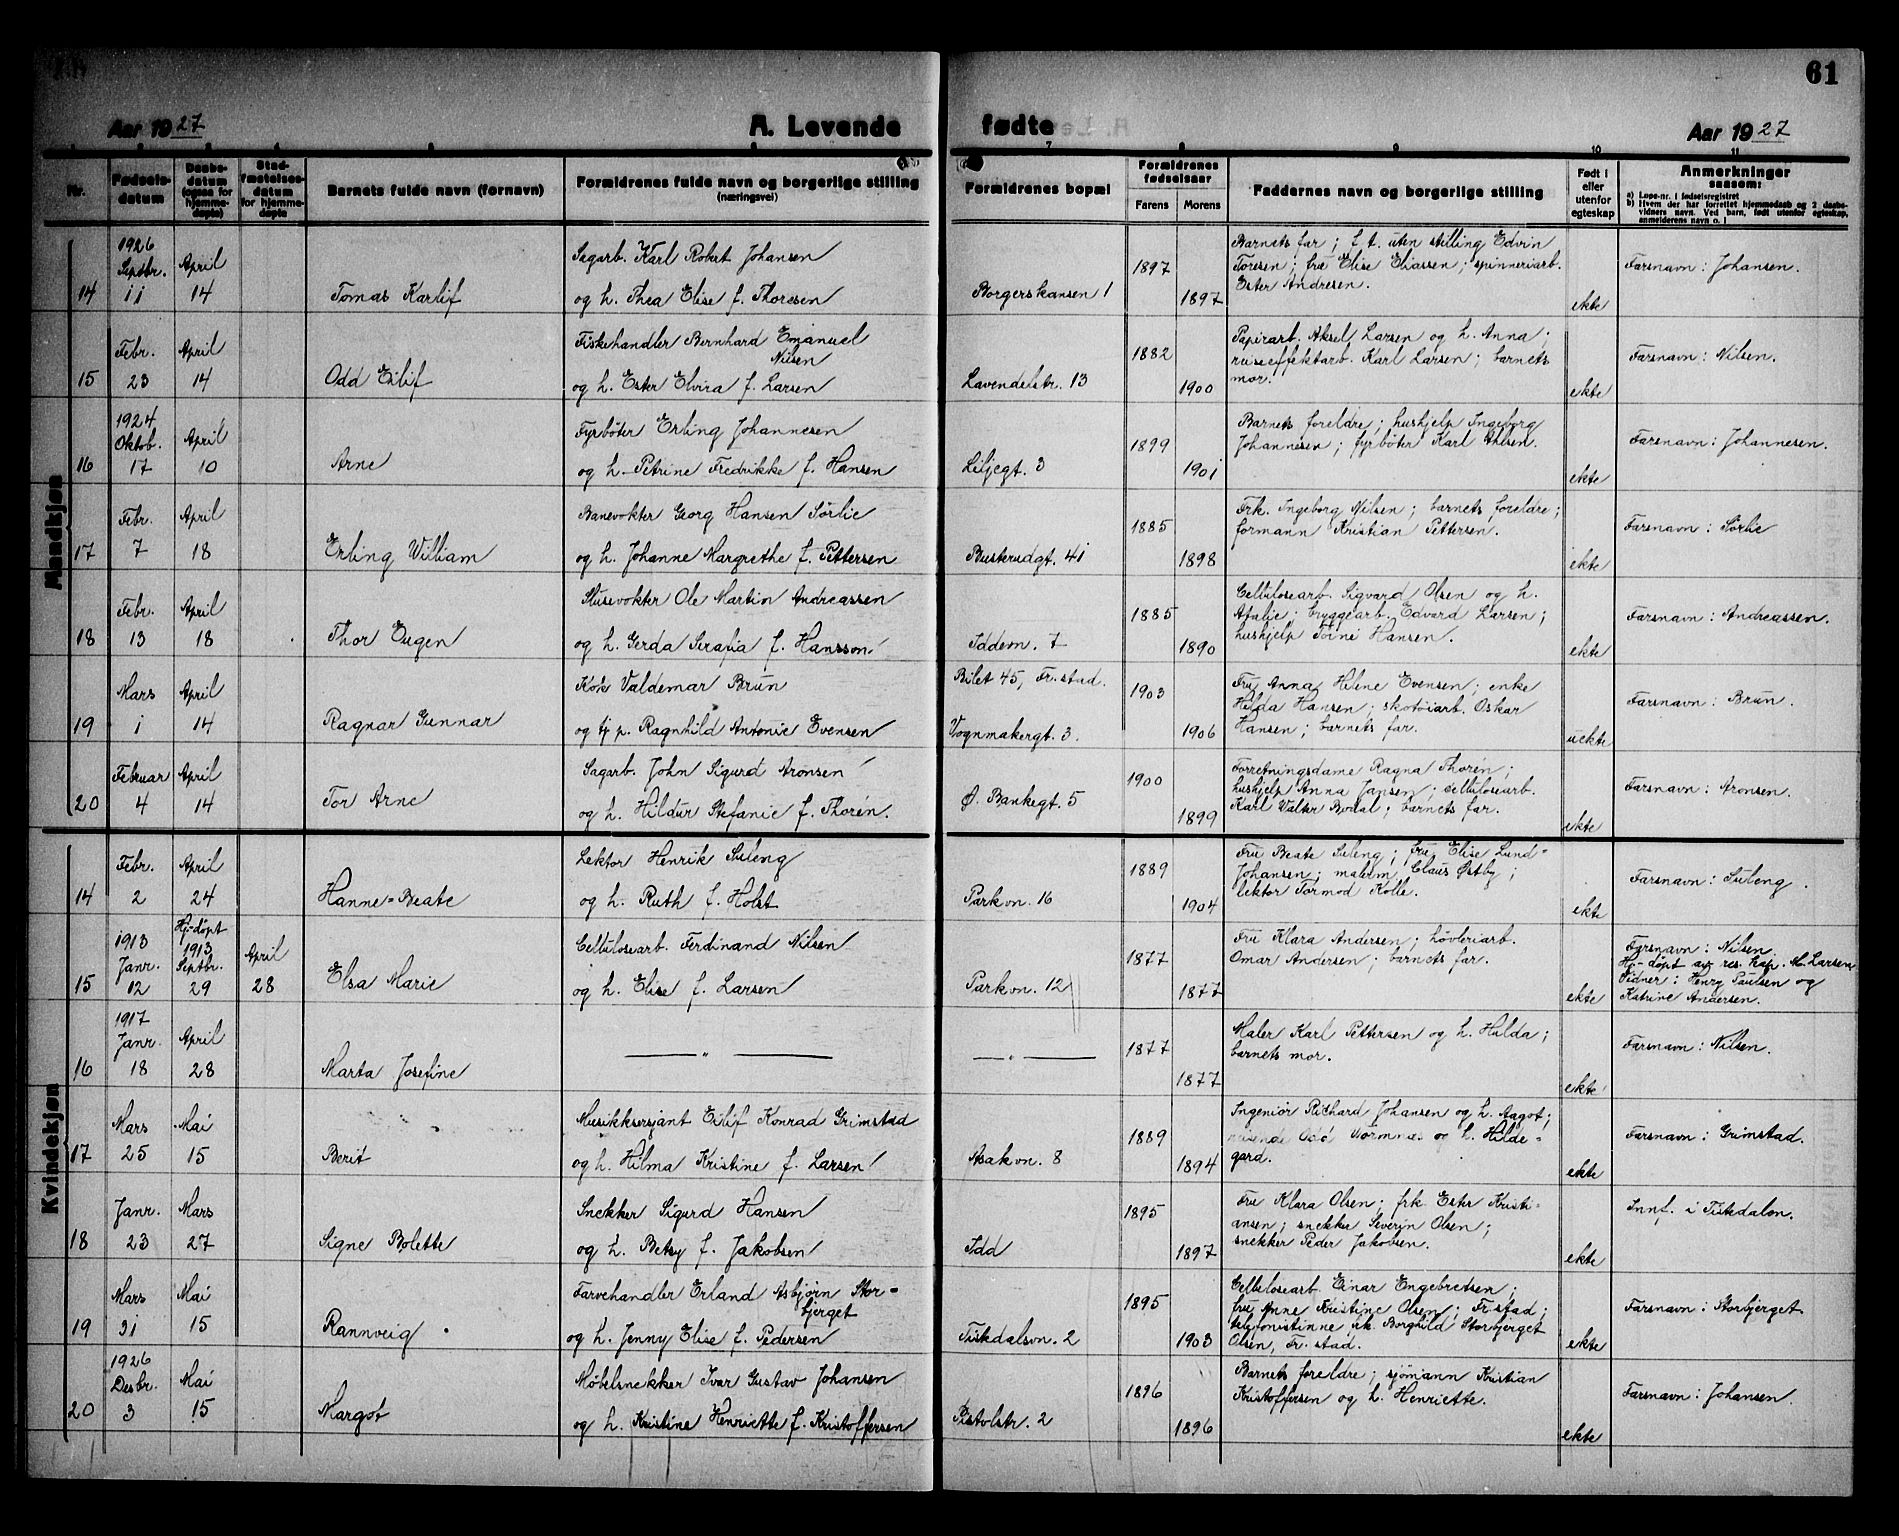 61
Aar 1927
A. Levende
fødte
Aar 1927
Nr.
Fødsels-
datum
Daabs-
datum
(ogsaa for
hjemme-
døpte)
Stad-
fæstelses-
datum
for hjemme-
døpte
Barnets fulde navn (fornavn)
Forældrenes fulde navn og borgerlige stilling
(næringsvei)
7
8
9
10
11
Forældrenes bopæl
Forældrenes
fødselsaar
Farens
Morens
Faddernes navn og borgerlige stilling
Født i
eller
utenfor
egteskap
Anmerkninger
saasom:
a) Løpe-nr. i fødselsregistret
b) Hvem der har forrettet hjemmedaab og 2 daabs-
vidners navn. Ved barn, født utenfor egteskap,
anmelderens navn o. l
Mandkjøn
14
1926
Septbr.
11
April
14
Tomas Karlif
Sagarb. Karl Robert Johansen
og h. Thea Elise f. Thoresen
Borgerskansen 1
1897
1897
Barnets far; f. t. uten stilling Edvin
Toresen; fru Elise Eliassen; spinneriarb.
Ester Andresen.
ekte
Farsnavn: Johansen.
15
Febr.
23
April
14
Odd Eilif
Fiskehandler Bernhard Emanuel
Nilsen
og h. Ester Elvira f. Larsen
Lavendelstr. 13
1882
1900
Papirarb. Aksel Larsen og h. Anna;
reiseeffektarb. Karl Larsen; barnets
mor.
ekte
Farsnavn: Nilsen.
16
1924
Oktob.
17
April
10
Arne
Fyrbøter Erling Johannesen
og h. Petrine Fredrikke f. Hansen
Liljegt. 3
1899
1901
Barnets foreldre; hushjelp Ingeborg
Johannesen; fyrbøter Karl
ekte
Farsnavn: Johannesen.
17
Febr.
7
April
18
Erling William
Banevokter Georg Hansen Sørlie
og h. Johanne Margrethe f. Pettersen
Busterudgt. 41
1885
1898
Frk. Ingeborg Nilsen; barnets foreldre;
formann Kristian Pettersen.
ekte
Farsnavn: Sørlie
18
Febr.
13
April
18
Thor Eugen
Slusevokter Ole Martin Andreassen
og h. Gerda Serafia f. Hansson
Iddevn. 7
1885
1890
Cellulosearb. Sigvard Olsen og h.
Atalie; bryggearb. Edvard Larsen;
hushjelp Toini Hansen.
ekte
Farsnavn: Andreassen.
19
Mars
1
April
14
Ragnar Gunnar
Kok Valdemar Brun
og tj. p. Ragnhild Antonie Evensen
Bilet 45, Fr.stad.
Vognmakergt. 3.
1903
1906
Fru Anna Helene Evensen; enke
Hilda Hansen; skotøiarb. Oskar
Hansen; barnets far.
uekte
Farsnavn: Brun.
20
Februar
4
April
14
Tor Arne
Sagarb. John Sigurd Aronsen
og h. Hildur Stefanie f. Thorén.
Ø. Bankegt. 5
1900
1899
Forretningsdame Ragna Thorén;
hushjelp Anna Jansen; cellulosearb.
Karl Valter Bodal; barnets far.
ekte
Farsnavn: Aronsen.
Kvindekjøn
14
Febr.
2
April
24
Hanne-Beate
Lektor Henrik Suleng
og h. Ruth f. Holst
Parkvn. 16
1889
1904
Fru Beate Suleng; fru Elise Lund-
Johansen; malerm. Claus Østby;
lektor Tormod Kolle.
ekte
Farsnavn: Suleng.
15
1913
Janr.
12
Hj-døpt
1913
Septbr.
29
April
28
Elsa Marie
Cellulosearb. Ferdinand Nilsen
og h. Elise f. Larsen
Parkvn. 12
1877
1877
Fru Klara Andersen; høvleriarb.
Omar Andersen; barnets far.
ekte
Farsnavn: Nilsen
Hj-døpt av res. kap. M. Larsen
Vidner: Henry Paulsen og
Katrine Andersen.
16
1917
Janr.
18
April
28
Marta Josefine
— „ —
— „ —
1877
1877
Maler Karl Pettersen og h. Hulda;
barnets mor.
ekte
Farsnavn: Nilsen.
17
Mars
25
Mai
15
Berit
Musikksersjant Eilif Konrad Grimstad
og h. Hilma Kristine f. Larsen
Asakvn. 8
1889
1894
Ingeniør Richard Johansen og h. Aagot;
Odd og h. Hilde-
gard.
ekte
Farsnavn: Grimstad.
18
Janr.
23
Mars
27
Signe Bolette
Snekker Sigurd Hansen
og h. Betsy f. Jakobsen
Idd
1895
1897
Fru Klara Olsen; frk Ester Kristi-
ansen; snekker Severin Olsen;
snekker Peder Jakobsen.
ekte
Innf. i Tistedalen.
19
Mars
31
Mai
15
Rannveig
Farvehandler Erland Asbjørn Stor-
bjerget
og h. Jenny Elise f. Pedersen
Tistedalsvn. 2
1895
1903
Cellulosearb Einar Engebretsen;
fru Anne Kristine Olsen, Fr.stad;
telefonistinne frk. Borghild Storbjerget
Olsen, Fr. stad.
ekte
Farsnavn: Storbjerget
20
1926
Desbr.
3
Mai
15
Margot
Møbelsnekker Ivar Gustav Johansen
og h. Kristine Henriette f. Kristoffersen
Pistolstr. 2
1896
1896
Barnets foreldre; sjømann Kristian
Kristoffersen og h. Henriette.
ekte
Farsnavn: Johansen